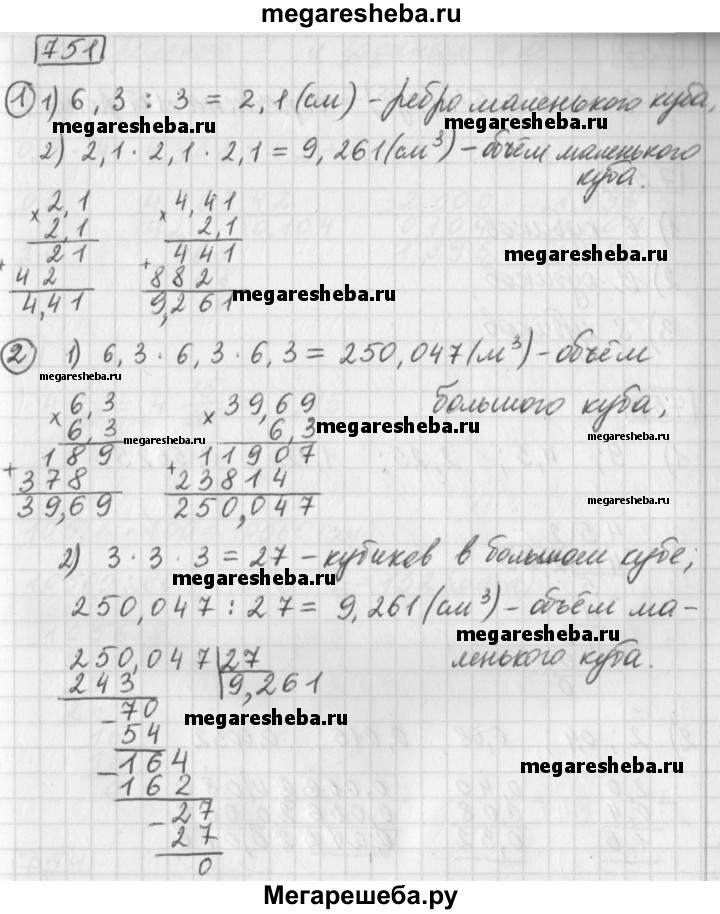 megaresheba.ru
751
① 1) 6,3 : 3 = 2,1 (см) - ребро маленького куба,
megaresheba.ru megaresheba.ru
2) 2,1 · 2,1 · 2,1 = 9,261 (см³) - объём маленького
куба.
× 2,1 × 4,41
2,1 2,1
21 441 megaresheba.ru
+ 42 + 882
4,41 9,261 megaresheba.ru
② 1) 6,3 · 6,3 · 6,3 = 250,047 (м³) - объём
megaresheba.ru большого куба;
× 6,3 × 39,69
6,3 6,3 megaresheba.ru
189 megaresheba.ru 11907 megaresheba.ru
+ 378 + 23814
39,69 250,047 megaresheba.ru
2) 3 · 3 · 3 = 27 - кубиков в большом кубе;
megaresheba.ru
250,047 : 27 = 9,261 (см³) - объём ма-
megaresheba.ru
250,047 | 27 ленького куба.
243 9,261
- 70 megaresheba.ru
54
- 164 megaresheba.ru
162
- 27
27
0
Мегарешеба.ру